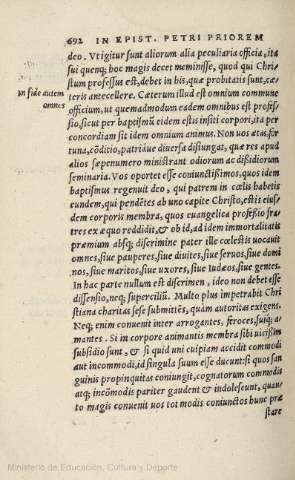 692 IN EPIST. PETRI PRIOREM
deo. Vt igitur sunt aliorum alia peculiaria officia, ita
sui quenq; hoc magis decet meminisse, quod qui Chri
stum professus est, debet in his, quæ probitatis sunt, cæ
In fide autem
omnes
teris antecellere. Cæterum illud est omnium commune
officium, ut quemadmodum eadem omnibus est profes
sio, sicut per baptismū eidem estis insiti corpori, ita per
concordiam sit idem omnium animus. Non uos ætas, for
tuna, cōditio, patriáue diuersa disiungat, quæ res apud
alios sæpenumero ministrant odiorum ac dissidiorum
seminaria. Vos oportet esse coniunctissimos, quos idem
baptismus regenuit deo, qui patrem in cœlis habetis
eundem, qui pendētes ab uno capite Christo, estis eius
dem corporis membra, quos euangelica professio fra
tres ex æquo reddidit, & ob id, ad idem immortalitatis
præmium absq; discrimine pater ille cœlestis uocauit
omnes, siue pauperes, siue diuites, siue seruos, siue domi
nos, siue maritos, siue uxores, siue Iudæos, siue gentes.
In hac parte nullum est discrimen, ideo non debet esse
dissensio, neq; supercilium. Multo plus impetrabit Chri
stiana charitas sese submittēs, quam autoritas exigens.
Neq; enim conuenit inter arrogantes, feroces, suiq; a-
mantes. Si in corpore animantis membra sibi uicissim
subsidio sunt, & si quid uni cuipiam accidit commodi
aut incommodi, id singula suum esse ducunt: si quos san
guinis propinquitas coniungit, cognatorum commodis
atq; incōmodis pariter gaudent & indolescunt, quan
to magis conuenit uos tot modis coniunctos hunc præ
stare
Ministerio de Educación, Cultura y Deporte